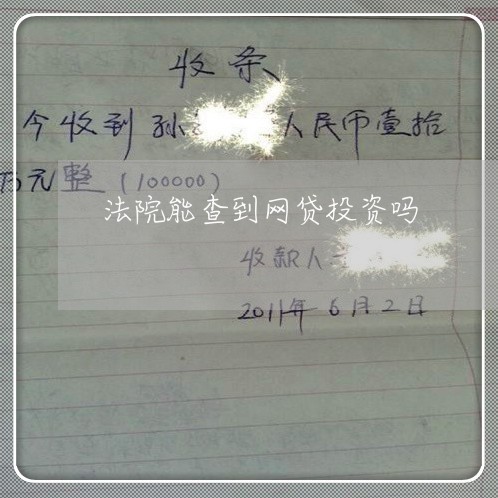 收条
今收到孙人民币壹拾
万元整(100000)
法院能查到网贷投资吗
收款人
2011年6月2日